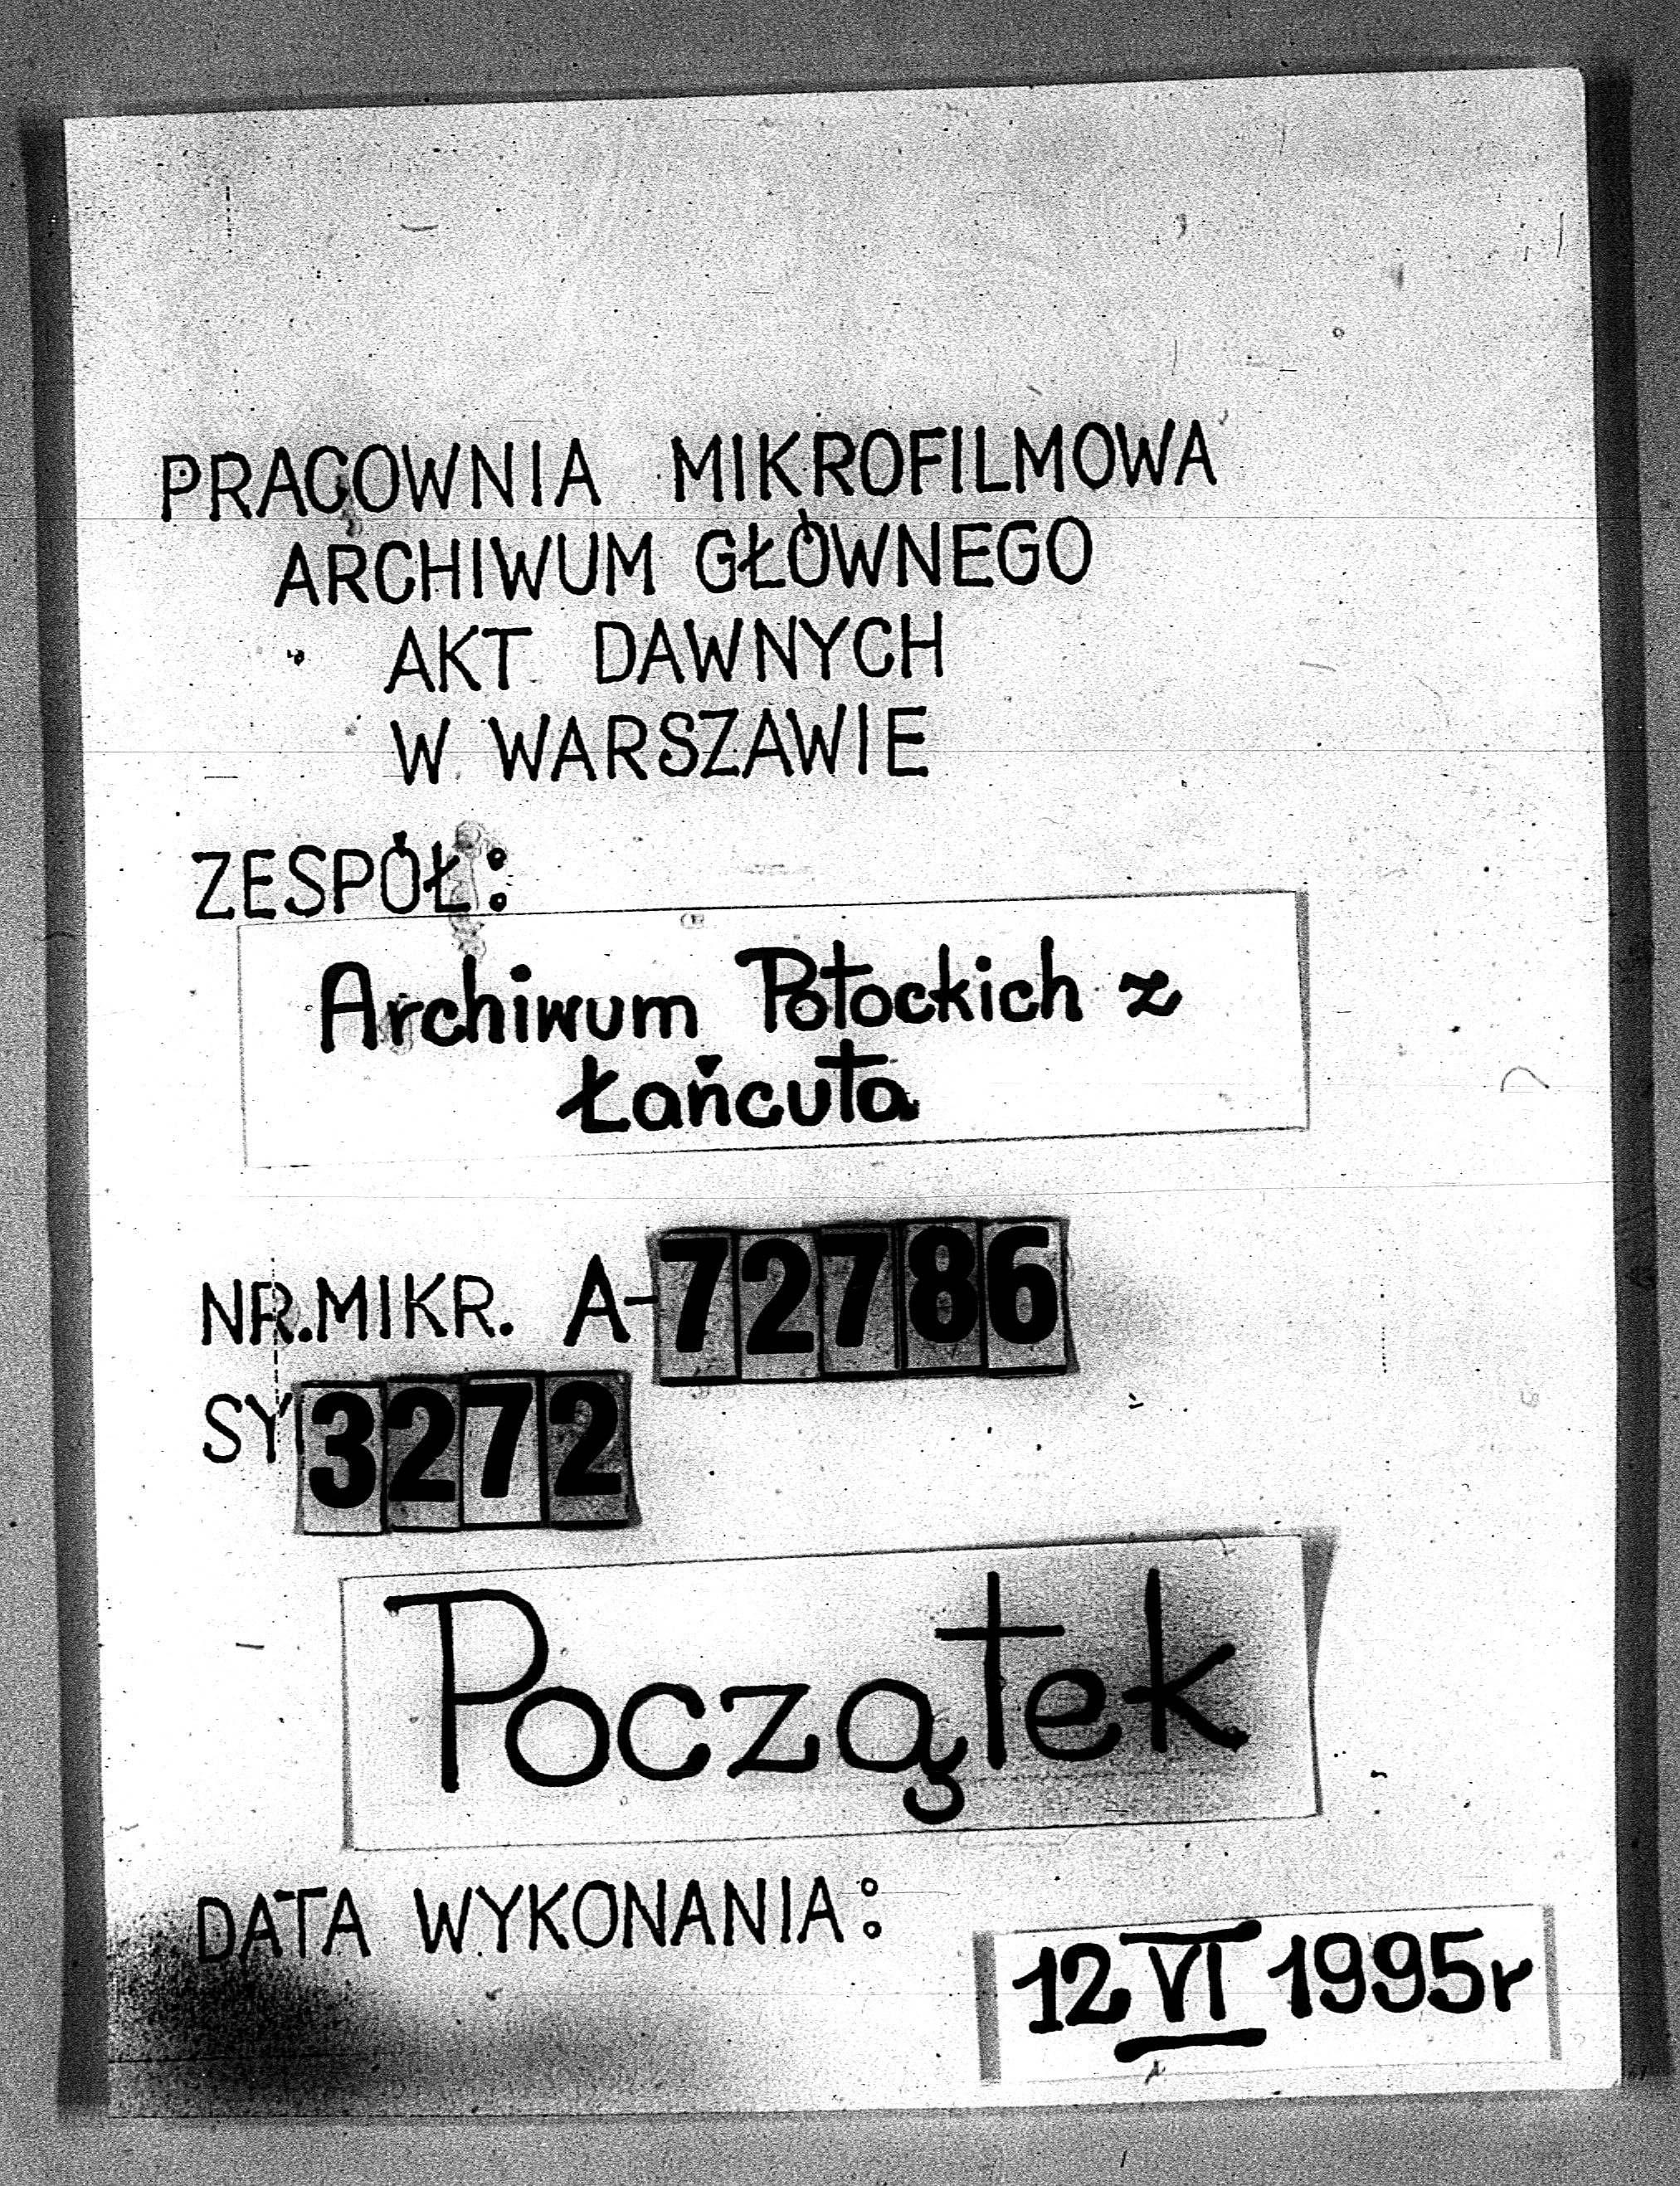 PRACOWNIA MIKROFILMOWA
ARCHIWUM GŁÓWNEGO
AKT DAWNYCH
W WARSZAWIE
ZESPÓŁ:
Archiwum Potockich z
Łańcuta
NR.MIKR. A-72786
SY 3272
Początek
DATA WYKONANIA:
12 VI 1995r